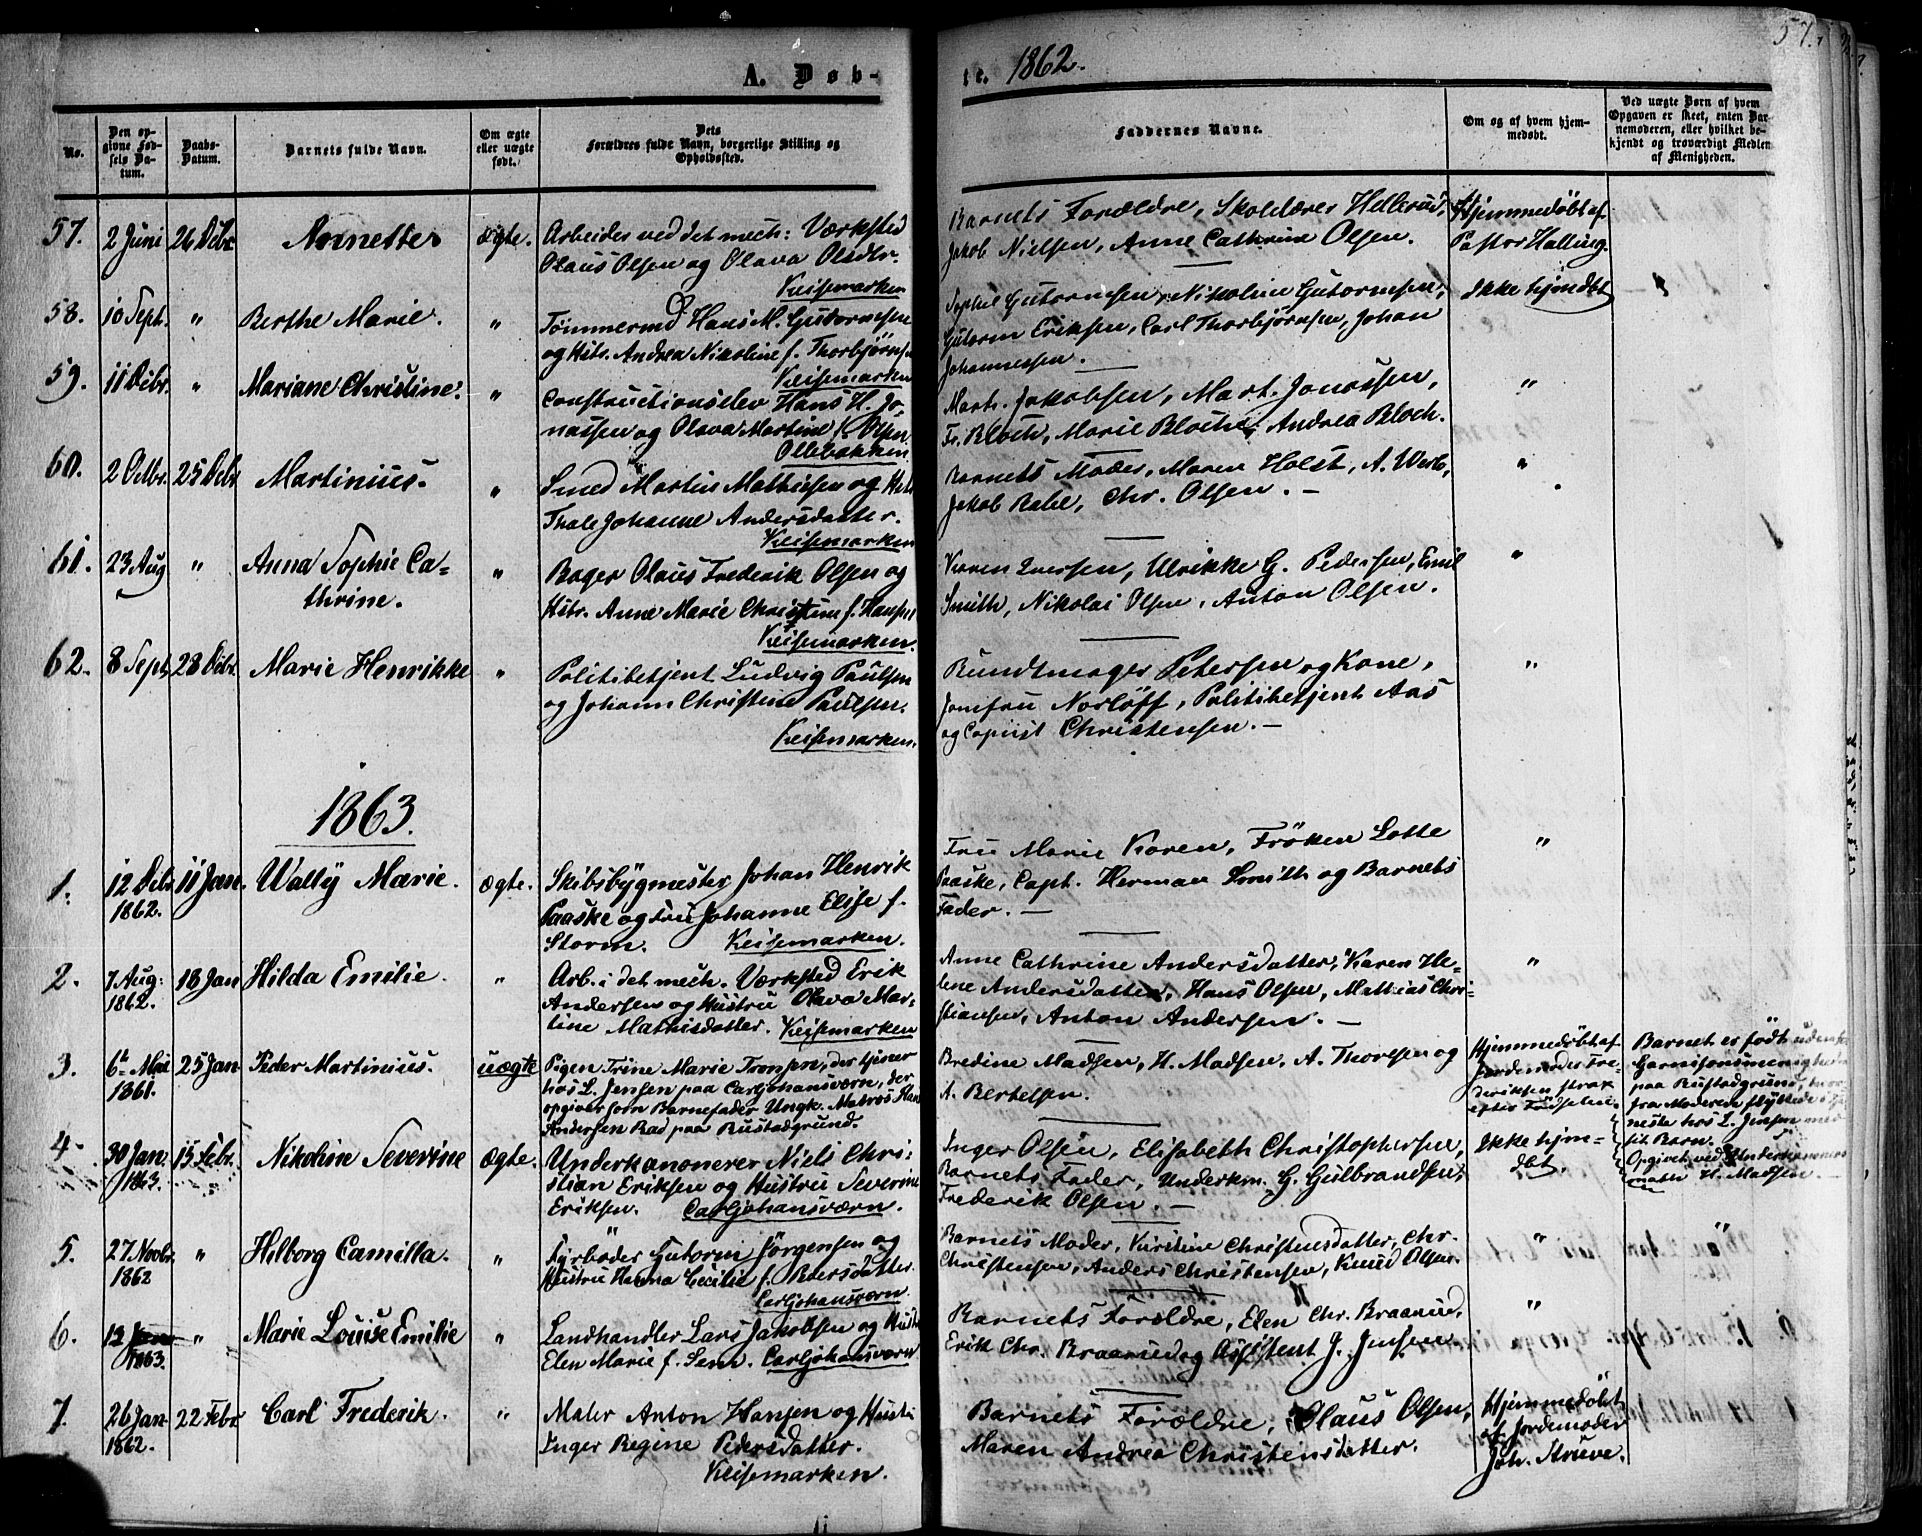 A. Døb-
te. 1862.
57.
No.
Den op-
givne Fød-
sels Da-
tum.
Daabs-
Datum.
Barnets fulde Navn.
Om ægte
eller uægte
født.
Dets
Forældres fulde Navn, borgerlige Stilling og
Opholdssted.
Faddernes Navne.
Om og af hvem hjem-
medøbt.
Ved uægte Børn af hvem
Opgaven er skeet, enten Bar-
nemoderen, eller hvilket be-
kjendt og troværdigt Medlem
af Menigheden.
57. 2 Juni 26 Debr. Annette ægte.
Arbeider ved det mech: Værksted
Olaus Olsen og Olava Olsdtr.
Keisemarken
Barnets Forældre, Skolelærer Hellerud,
Jakob Nielsen, Anne Cathrine Olsen.
Hjemmedøbt af
Pastor Halling.
58. 10 Sept. " Berthe Marie. "
Tømmermd Hans M. Gutormsen
og Hstr. Andrea Nikoline f. Thorbjørnsen
Keisemarken
Sophie Gutormsen, Nikoline Gutormsen,
Gutorm Eriksen, Carl Thorbjørnsen, Johan
Johannessen.
Ikke hjmdbt
59. 11 Debr. " Mariane Christine. "
Constructionselev Hans H. Jo-
nassen og Olava Martine f. Olsen.
Ollebakken
Mart. Jakobsen, Mart. Jonassen,
Fr. Bloch, Marie Bloch, Andrea Bloch.
"
60. 2 Octbr. 25 Debr. Martinius. "
Smed Martin Mathisen og Hstr
Thale Johanne Andersdatter.
Keisemarken
Barnets Moder, Maren Holst, A. Werb,
Jakob Rabe, Chr. Olsen.
"
61. 23 Aug " Anna Sophie Ca-
thrine. "
Bager Olaus Frederik Olsen og
Hstr. Anne Marie Christine f. Hansen
Keisemarken.
Karen Iversen, Ulrikke G. Pedersen, Emil
Smith, Nikolai Olsen, Anton Olsen.
"
62. 8 Sept. 28 Debr. Marie Henrikke "
Politibetjent Ludvig Paulsen
og Johann Christine Paulsen.
Keisemarken.
Bundtmager Petersen og Kone,
Jomfru Norløff, Politibetjent Aas
og Copiist Christensen.
"
1863.
1. 12 Debr. 1862. 11 Jan. Wally Marie. ægte.
Skibsbygmester Johan Henrik
Paaske og Fru Johanne Elise f.
Storm. Keisemarken.
Fru Marie Koren, Frøken Lotte
Paaske, Capt. Herman Smith og Barnets
Fader.
"
2. 7 Aug: 1862. 18 Jan Hilda Emilie. "
Arb. i det mech. Værksted Erik
Andersen og Hustru Olava Mar-
tine Mathisdatter. Keisemarken
Anne Cathrine Andersdatter, Karen He-
lene Andersdatter, Hans Olsen, Mathias Chri-
stiansen, Anton Andersen.
"
3. 6te Mai 1861. 25 Jan Peder Martinius. uægte
Pigen Trine Marie Tronsen, der tjener
hos L. Jensen paa Carljohansværn, der
opgiver som Barnefader Ungk. Matros Hans
Andersen Bad paa Rustadgrund.
Bredine Madsen, H. Madsen, A. Thoresen og
A. Bertelsen.
Hjemmedøbt af
Jordemoder Fre-
deriksen strax
efter Fødselen.
Barnet er født udenfor
Garnisonsmenigheden
paa Rustadgrund, hvor-
fra Moderen flyttede i Tje-
neste hos L. Jensen med
sit Barn.
Opgivet ved Underkanoner
mater H. Madsen.
4. 30 Jan. 1863. 15 Febr. Nikoline Severine ægte.
Underkanonerer Niels Chri-
stian Eriksen og Hustru Severine
Eriksen. Carljohansværn.
Inger Olsen, Elisabeth Christophersen,
Barnets Fader, Underkm. G. Gulbrandsen,
Frederik Olsen.
Ikke hjm-
dbt.
5. 27 Novbr. 1862 " Hilborg Camilla. "
Fyrbøder Gutorm Jørgensen og
Hustru Hanna Cecilie f. Pedersdatter.
Carljohansværn
Barnets Moder, Kirstine Christensdatter, Chr.
Christensen, Anders Christensen, Knud Olsen.
" "
6. 12 Jan 1863. " Marie Louise Emilie "
Landhandler Lars Jakobsen og Hustr
Elen Marie f. Sem. Carljohansværn
Barnets Forældre, Elen Chr. Braarud,
Erik Chr. Braarud og Assistent J. Jensen
"
7. 26 Jan 1862. 22 Febr. Carl Frederik. "
Maler Anton Hansen og Hustr
Inger Regine Pedersdatter.
Keisemarken.
Barnets Forældre, Olaus Olsen,
Maren Andrea Christensdatter.
Hjemmedøbt
af Jordemoder
Joh. Struve.